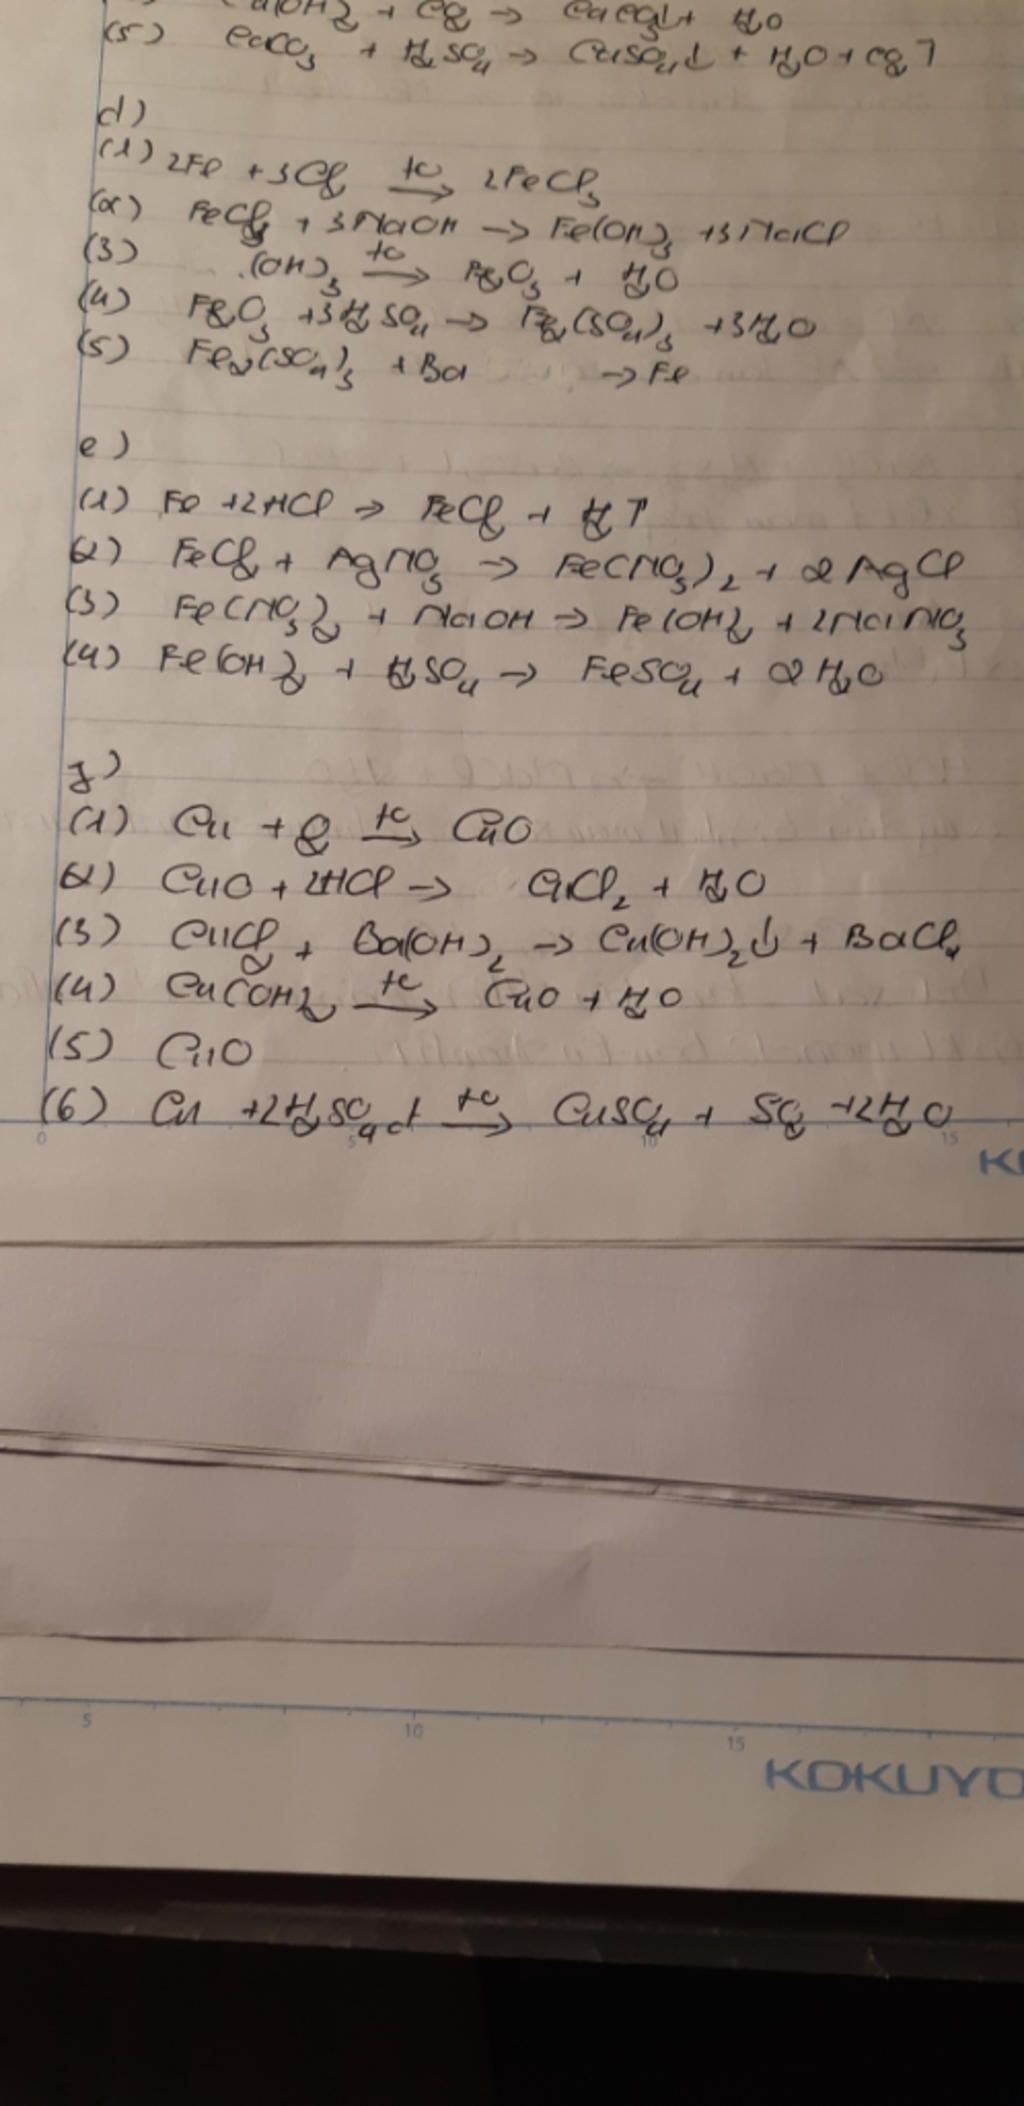 Ca(OH)₂ + CO₂ → CaCO₃↓ + H₂O
(5) CaCO₃ + H₂SO₄ → CaSO₄↓ + H₂O + CO₂↑
d)
(1) 2Fe + 3Cl₂ →(t°) 2FeCl₃
(2) FeCl₃ + 3NaOH → Fe(OH)₃ + 3NaCl
(3) (OH)₃ →(t°) Fe₂O₃ + H₂O
(4) Fe₂O₃ + 3H₂SO₄ → Fe₂(SO₄)₃ + 3H₂O
(5) Fe₂(SO₄)₃ + Ba → Fe
e)
(1) Fe + 2HCl → FeCl₂ + H₂↑
(2) FeCl₂ + AgNO₃ → Fe(NO₃)₂ + 2AgCl
(3) Fe(NO₃)₂ + NaOH → Fe(OH)₂ + 2NaNO₃
(4) Fe(OH)₂ + H₂SO₄ → FeSO₄ + 2H₂O
g)
(1) Cu + O₂ →(t°) CuO
(2) CuO + 2HCl → CuCl₂ + H₂O
(3) CuCl₂ + Ba(OH)₂ → Cu(OH)₂↓ + BaCl₂
(4) Cu(OH)₂ →(t°) CuO + H₂O
(5) CuO
(6) Cu + 2H₂SO₄đ →(t°) CuSO₄ + SO₂ + 2H₂O
0 5 10 15
5 10 15
KOKUYO